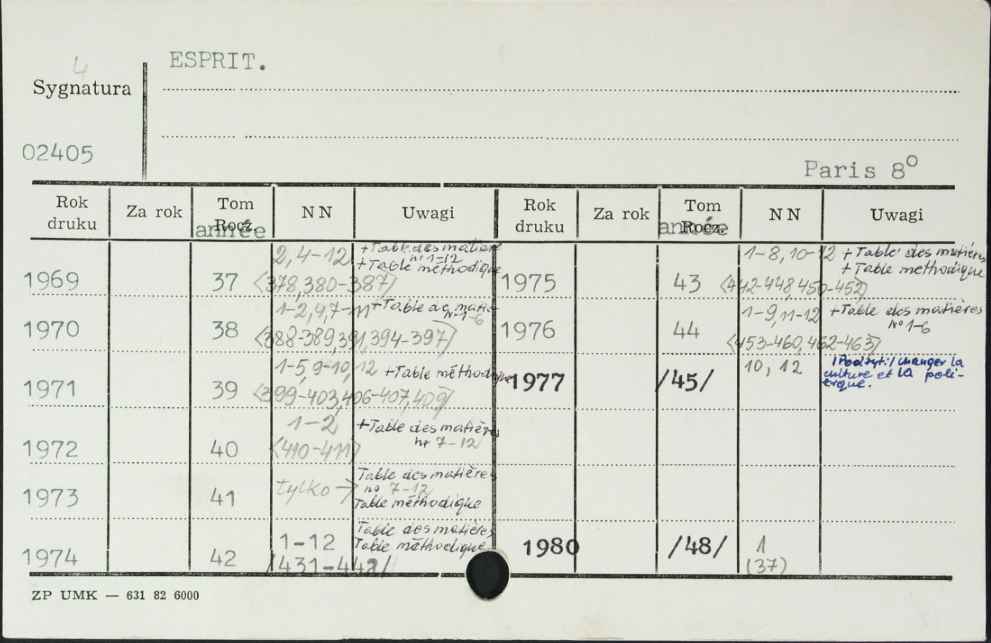 4
ESPRIT.
Sygnatura
02405
Paris 8º
Rok druku Za rok Tom Rocz. année NN Uwagi Rok druku Za rok Tom Rocz. année NN Uwagi
1969 37 2, 4-12 <378, 380-387/ +Table des matières nr 1-12 +Table méthodique
1970 38 1-2, 4, 7-11 <388-389, 391, 394-397/ +Table de matiè N° 1-6
1971 39 1-5, 9-10, 12 <399-403, 406-407, 409/ +Table méthodique
1972 40 1-2 <410-411/ +Table des matières nr 7-12
1973 41 tylko → Table des matières no 7-12 Table méthodique
1974 42 1-12 /431-442/ Table des matières Table méthodique
1975 43 1-8, 10-12 <442-448, 450-452/ +Table des matières +Table méthodique
1976 44 1-9, 11-12 <453-460, 462-463/ +Table des matières N° 1-6
1977 /45/ 10, 12 /Podtyt:/ changer la culture et la poli-tique.
1980 /48/ 1 (37)
ZP UMK — 631 82 6000